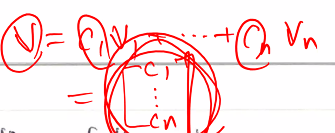 V = C₁V₁ + ⋯⋯ + Cₙ Vₙ
= [C₁ ⋮ Cₙ]